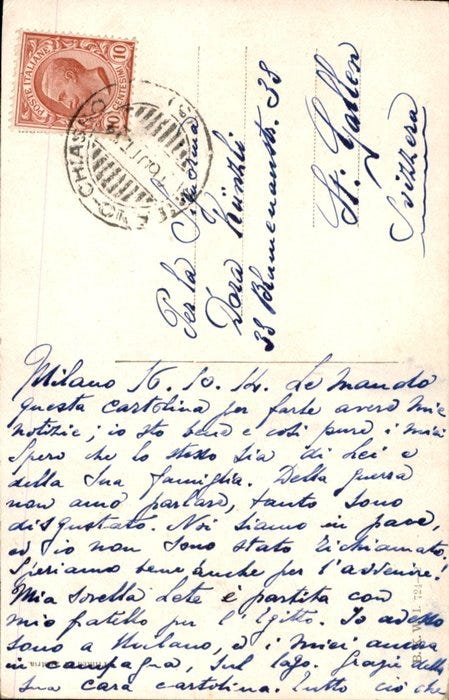 POSTE ITALIANE
10 CENTESIMI 10
MILANO-CHIASSO
Per la Signorina
Dora Künzli
33 Blumenaustr. 38
St. Gallen
Svizzera
Milano 16.10.14. Le mando
questa cartolina per farle avere mie
notizie; io sto bene e così pure i miei
Spero che lo stesso sia di Lei e
della Sua famiglia. Della guerra
non amo parlare, tanto sono
disgustato. Noi siamo in pace,
ed io non sono stato richiamato.
Speriamo bene anche per l'avvenire!
Mia sorella Lete è partita con
mio fratello per l'Egitto. Io adesso
sono a Milano, e i miei ancora
in campagna, sul lago. Grazie della
sua cara cartolina. Tutto ciò che